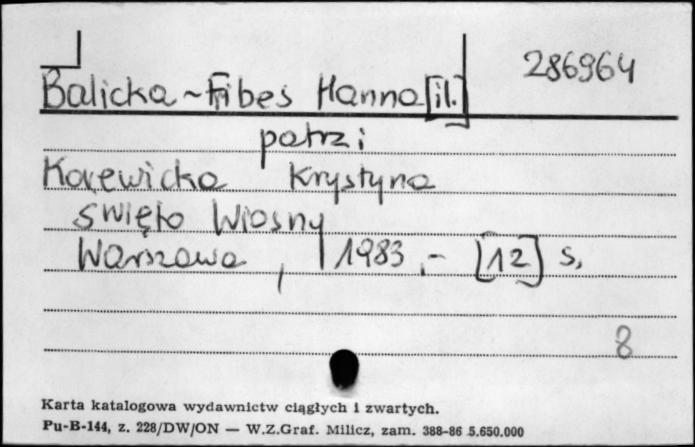 286964
Balicka-Fibes Hanna [il.]
patrz:
Korewicka Krystyna
Święto Wiosny
Warszawa, 1983.- [12] s.
8
Karta katalogowa wydawnictw ciągłych i zwartych.
Pu-B-144, z. 228/DW/ON — W.Z.Graf. Milicz, zam. 388-86 5.650.000